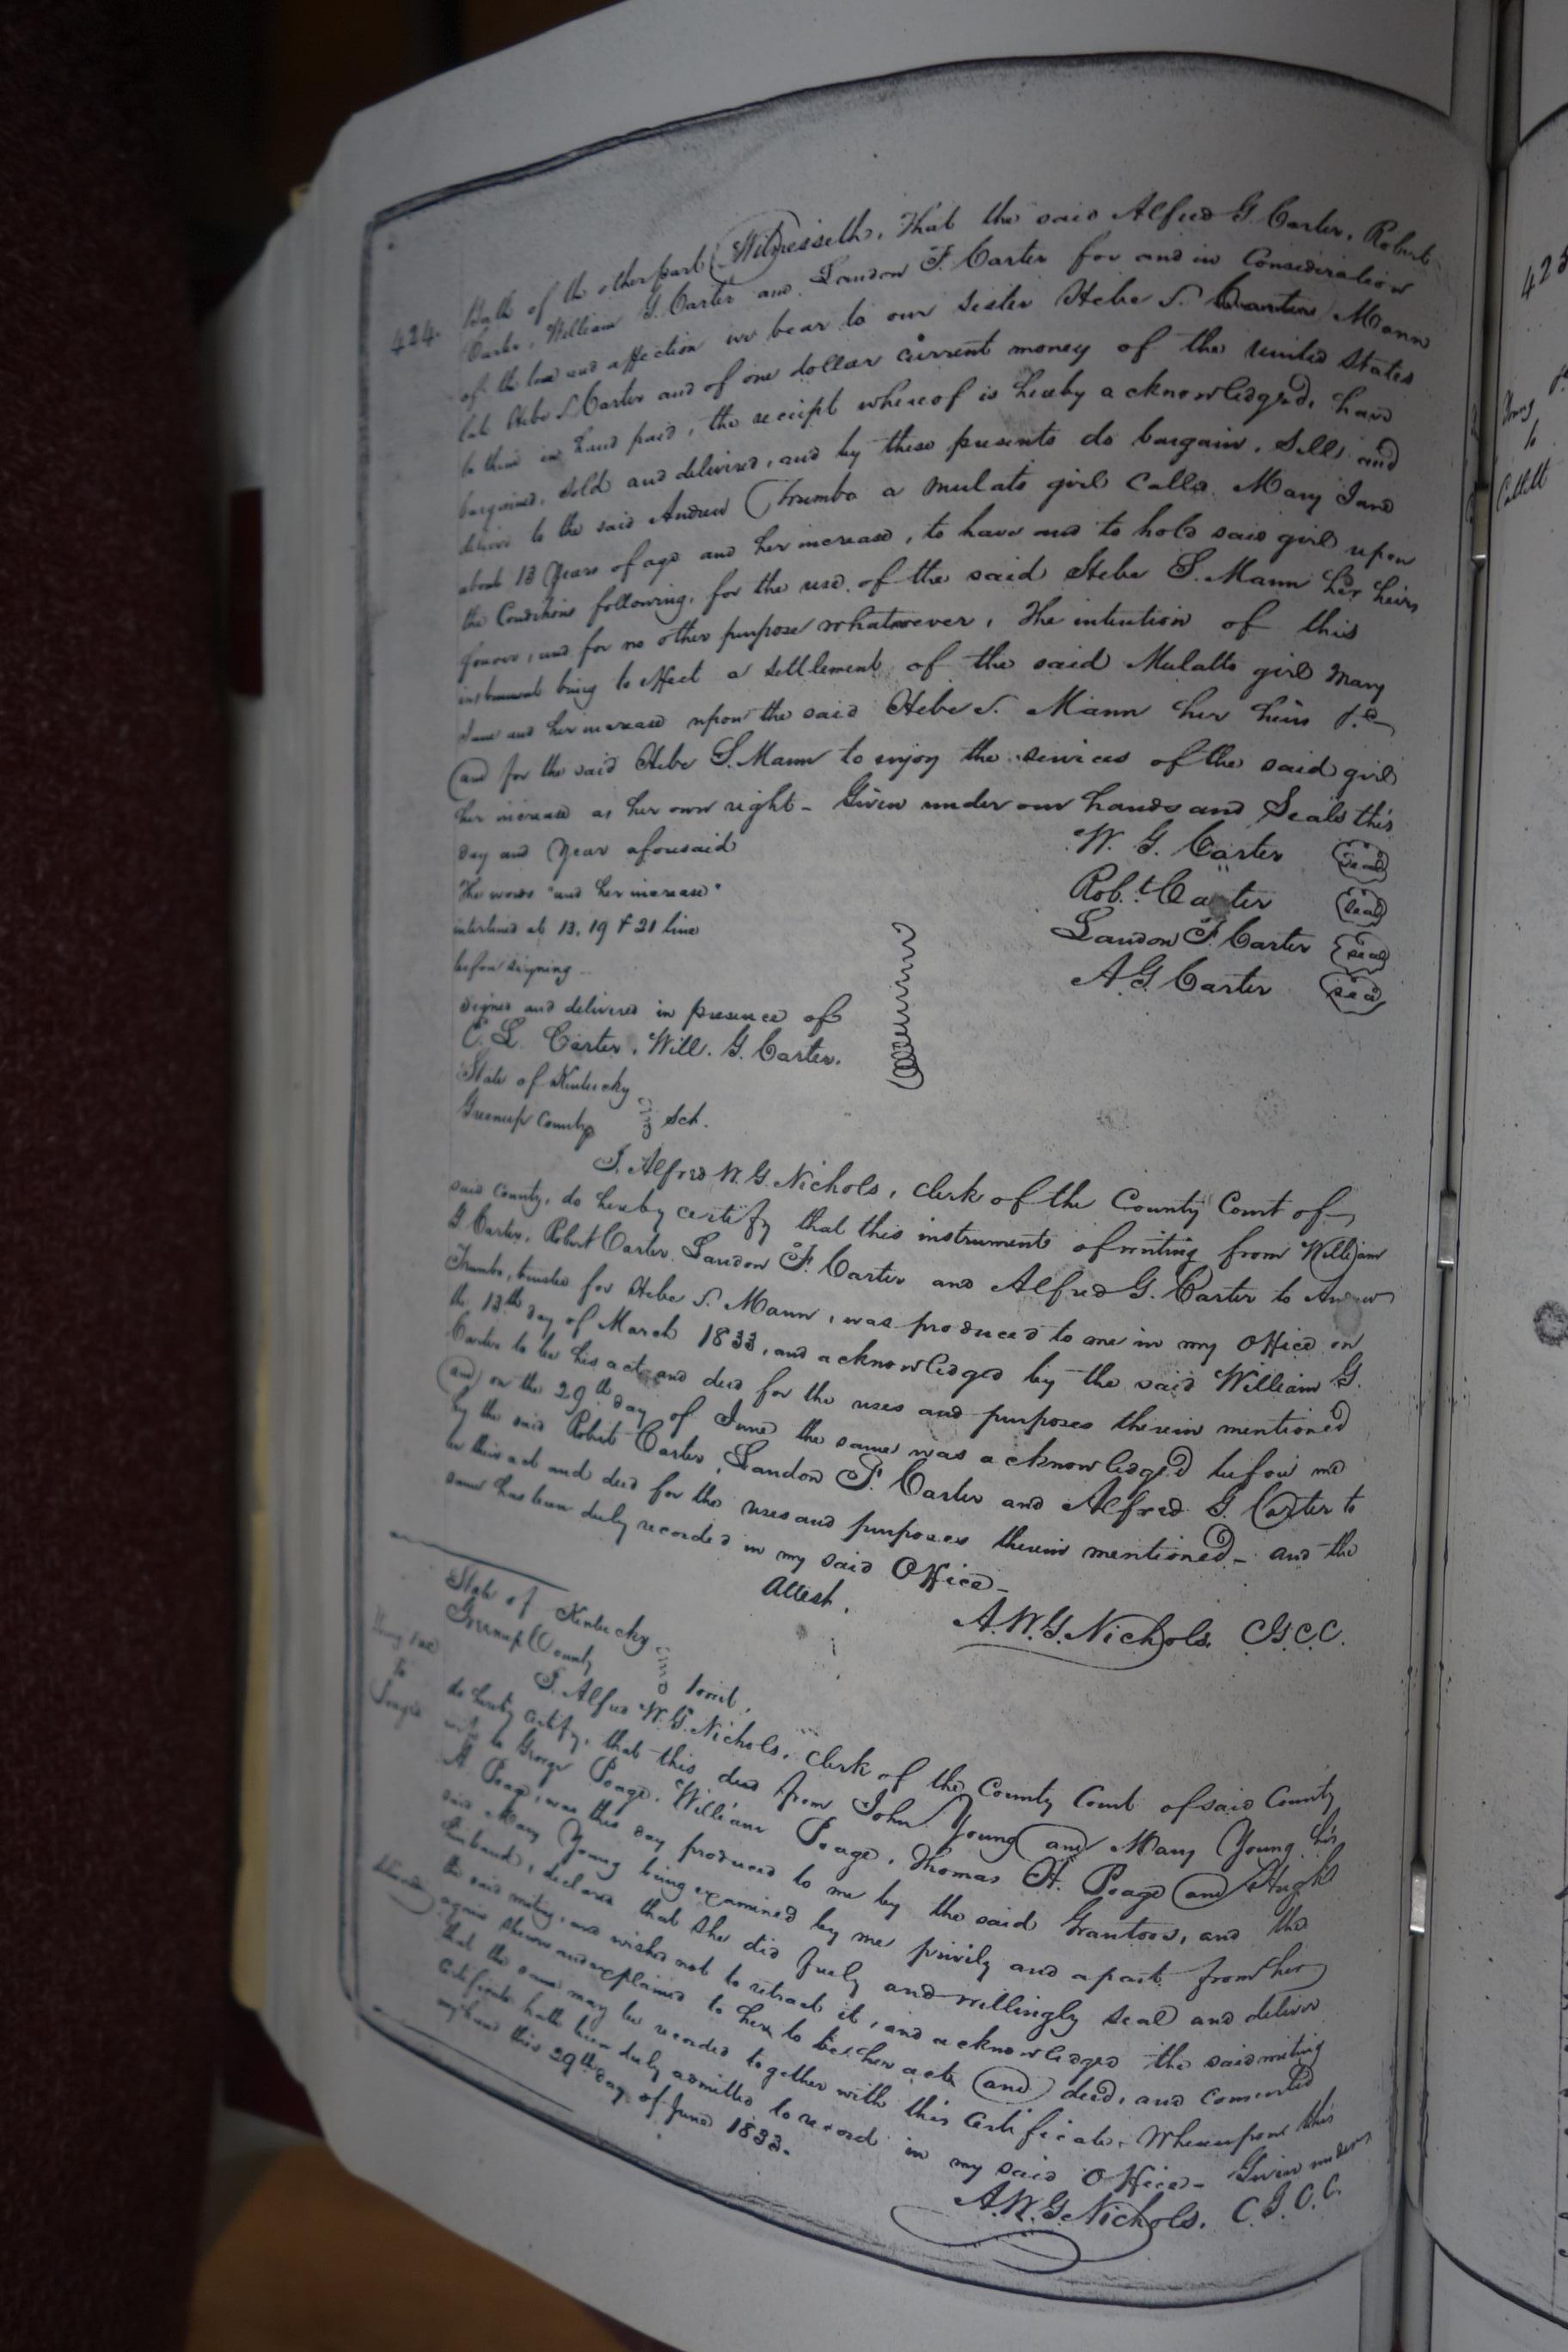 424.
Bath of the other part Witnesseth, That the said Alfred G. Carter, Robert
Carter, William G. Carter and Landon F. Carter for and in Consideration
of the love and affection we bear to our sister Hebe S. Mann
late Hebe S. Carter and of one dollar current money of the United States
to them in hand paid, the receipt whereof is hereby acknowledged, have
bargained, sold and delivered, and by these presents do bargain, sell and
deliver to the said Andrew Trumbo a mulato girl Calld. Mary Jane
about 13 Years of age and her increase, to have and to hold said girl upon
the Conditions following, for the use of the said Hebe S. Mann her heirs
forever, and for no other purpose whatsoever, The intention of this
instrument being to effect a settlement of the said Mulatto girl Mary
Jane and her increase upon the said Hebe S. Mann her heirs &c
and for the said Hebe S. Mann to enjoy the services of the said girl
her increase as her own right - Given under our hands and Seals this
day and Year aforesaid
W. G. Carter Seal
The words "and her increase"
Robt. Carter Seal
interlined at 13, 19 & 21 line
Landon F. Carter Seal
before signing
A. G. Carter Seal
signed and delivered in presence of
C. L. Carter, Will. G. Carter.
State of Kentucky
Greenup County Sct.
I, Alfred W. G. Nichols, clerk of the County Court of
said County, do hereby certify that this instrument of writing from William
G Carter, Robert Carter, Landon F. Carter and Alfred G. Carter to Andrew
Trumbo, trustee for Hebe S. Mann, was produced to me in my Office on
the 13th day of March 1833, and acknowledged by the said William G.
Carter to be his act and deed for the uses and purposes therein mentioned
and on the 29th day of June the same was acknowledged before me
by the said Robert Carter, Landon F. Carter and Alfred G. Carter to
be their act and deed for the uses and purposes therein mentioned - and the
same has been duly recorded in my said Office -
Attest.
A. W. G. Nichols. C.G.C.C.
State of Kentucky
Greenup County towit,
to
I, Alfred W. G. Nichols, clerk of the County Court of said County
do hereby certify, that this deed from John Young and Mary Young his
wife to George Poage, William Poage, Thomas H. Poage and Hugh
A Poage, was this day produced to me by the said Grantors, and the
said Mary Young being examined by me privily and apart from her
husband, declared that she did freely and willingly seal and deliver
the said writing, and wished not to retract it, and acknowledged the said writing
again shewn and explained to her, to be her act and deed, and consented
that the same may be recorded together with this Certificate. Whereupon this
certificate hath been duly admitted to record in my said Office - Given under
my hand this 29th day of June 1833.
A. W. G. Nichols. C.G.C.C.
425
to